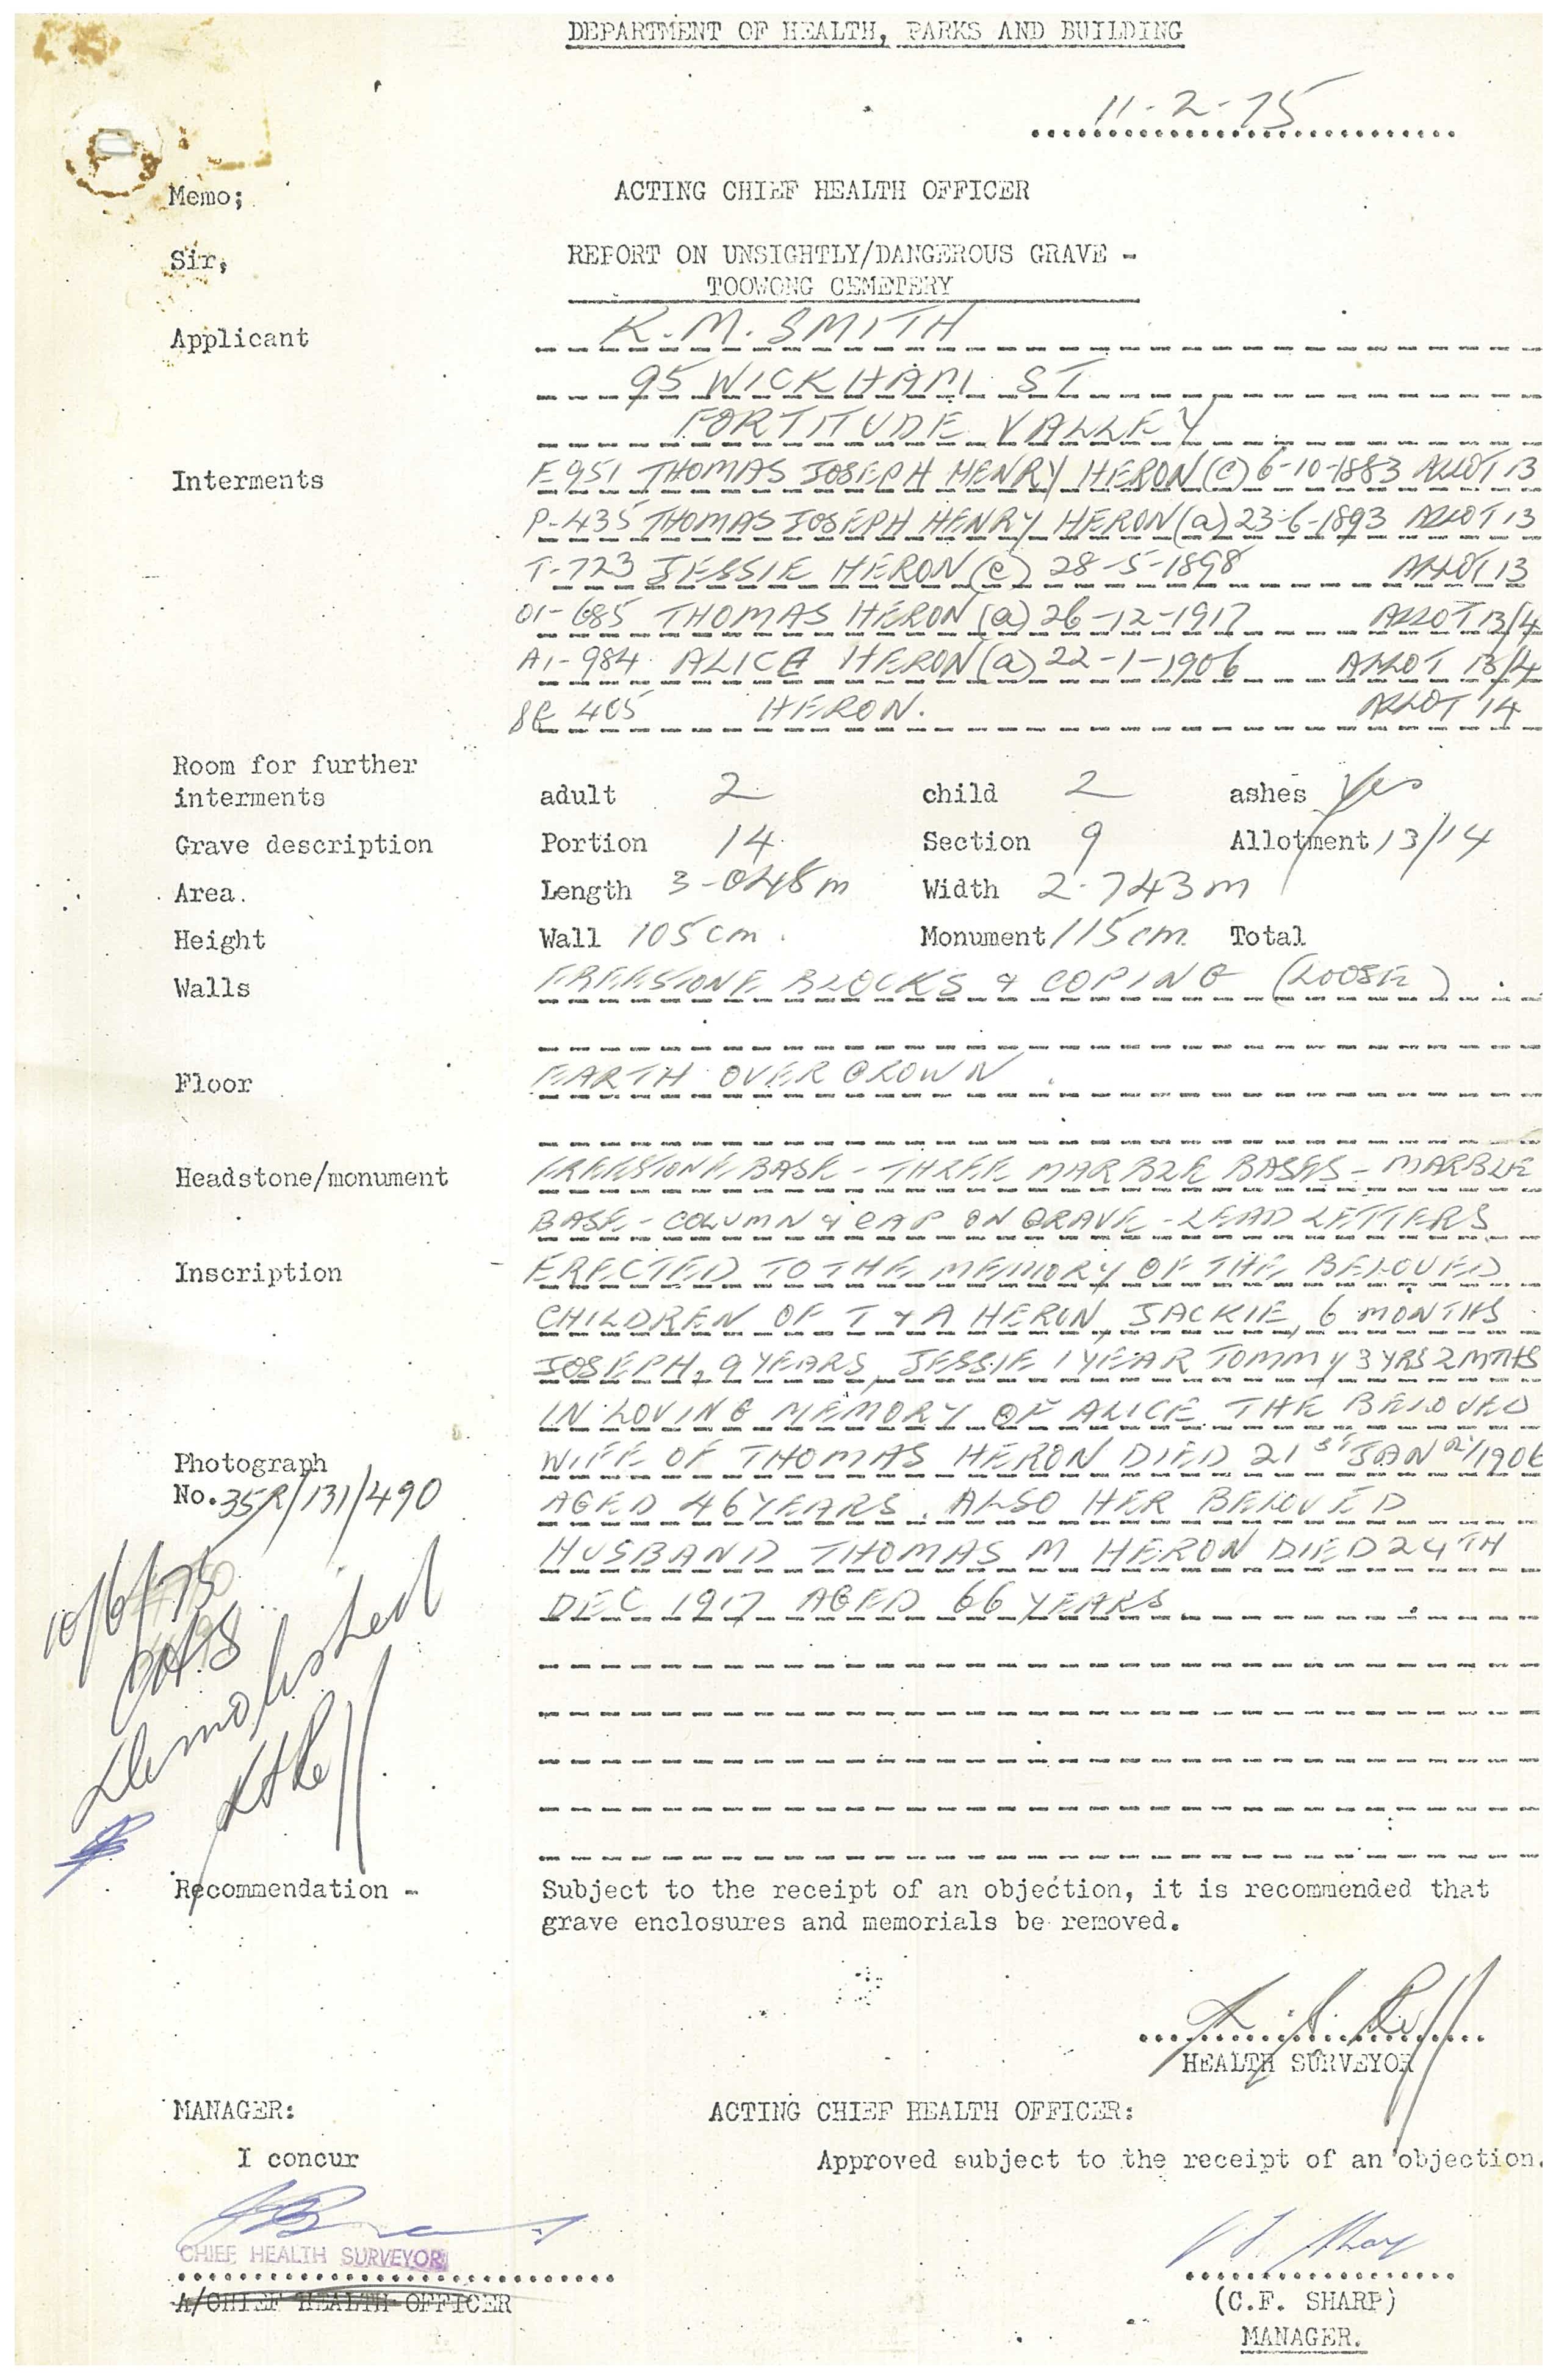 DEPARTMENT OF HEALTH, PARKS AND BUILDING
11-2-75
Memo; ACTING CHIEF HEALTH OFFICER
Sir, REPORT ON UNSIGHTLY/DANGEROUS GRAVE -
TOOWONG CEMETERY
Applicant K.M. SMITH
95 WICKHAM ST
FORTITUDE VALLEY
Interments E951 THOMAS JOSEPH HENRY HERON (c) 6-10-1883 ALLOT 13
P-435 THOMAS JOSEPH HENRY HERON (a) 23-6-1893 ALLOT 13
T-723 JESSIE HERON (c) 28-5-1898 ALLOT 13
01-685 THOMAS HERON (a) 26-12-1917 ALLOT 13/4
A1-984 ALICE HERON (a) 22-1-1906 ALLOT 13/4
405 HERON. ALLOT 14
Room for further
interments adult 2 child 2 ashes Yes
Grave description Portion 14 Section 9 Allotment 13/14
Area. Length 3-048m Width 2.743m
Height Wall 105cm. Monument 115cm Total
Walls FREESTONE BLOCKS & COPING (LOOSE)
Floor EARTH OVERGROWN
Headstone/monument FREESTONE BASE - THREE MARBLE BASES - MARBLE
BASE - COLUMN & CAP ON GRAVE - LEAD LETTERS
Inscription ERECTED TO THE MEMORY OF THE BELOVED
CHILDREN OF T & A HERON, JACKIE, 6 MONTHS
JOSEPH, 9 YEARS, JESSIE 1 YEAR TOMMY 3 YRS 2 MTHS
IN LOVING MEMORY OF ALICE THE BELOVED
WIFE OF THOMAS HERON DIED 21ST JAN 1906
AGED 46 YEARS. ALSO HER BELOVED
HUSBAND THOMAS M HERON DIED 24TH
DEC 1917 AGED 66 YEARS
Photograph
No. 35R/131/490
10/6/75
Demolished
Recommendation - Subject to the receipt of an objection, it is recommended that
grave enclosures and memorials be removed.
HEALTH SURVEYOR
MANAGER: ACTING CHIEF HEALTH OFFICER:
I concur Approved subject to the receipt of an objection.
CHIEF HEALTH SURVEYOR
A/CHIEF HEALTH OFFICER
(C.F. SHARP)
MANAGER.